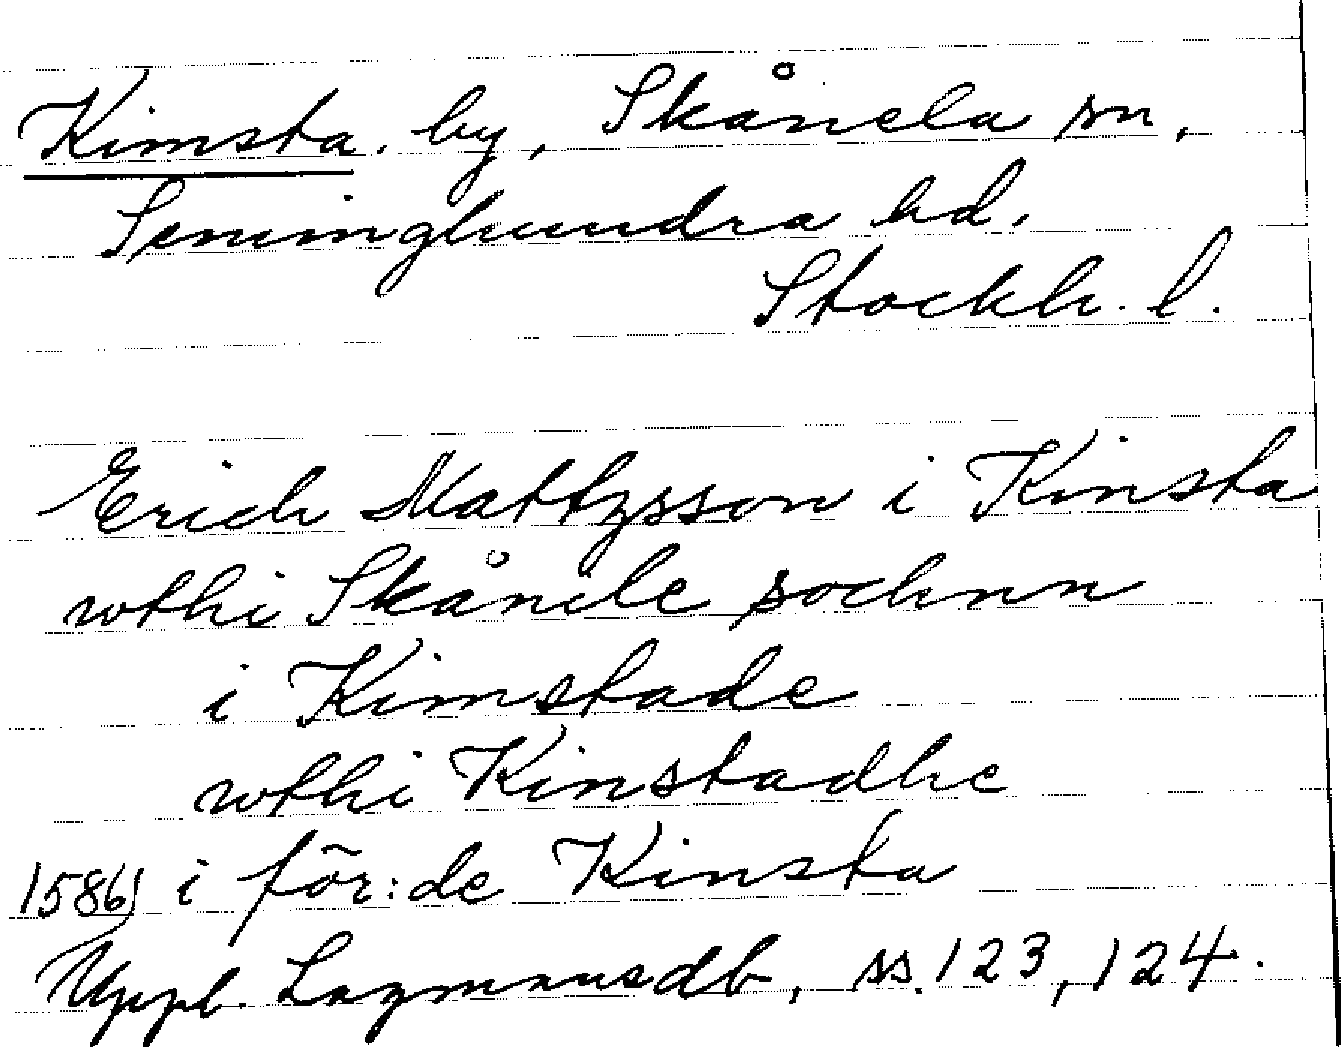 Kimsta. by, Skånela sn,
Seminghundra hd.
Stockh. l.
Erich Mattzsson i Kinsta
wthi Skånele sochnn
i Kimstade
wthi Kinstadhe
1586 i för:de Kinsta
Uppl. Lagmansdb, ss. 123, 124.